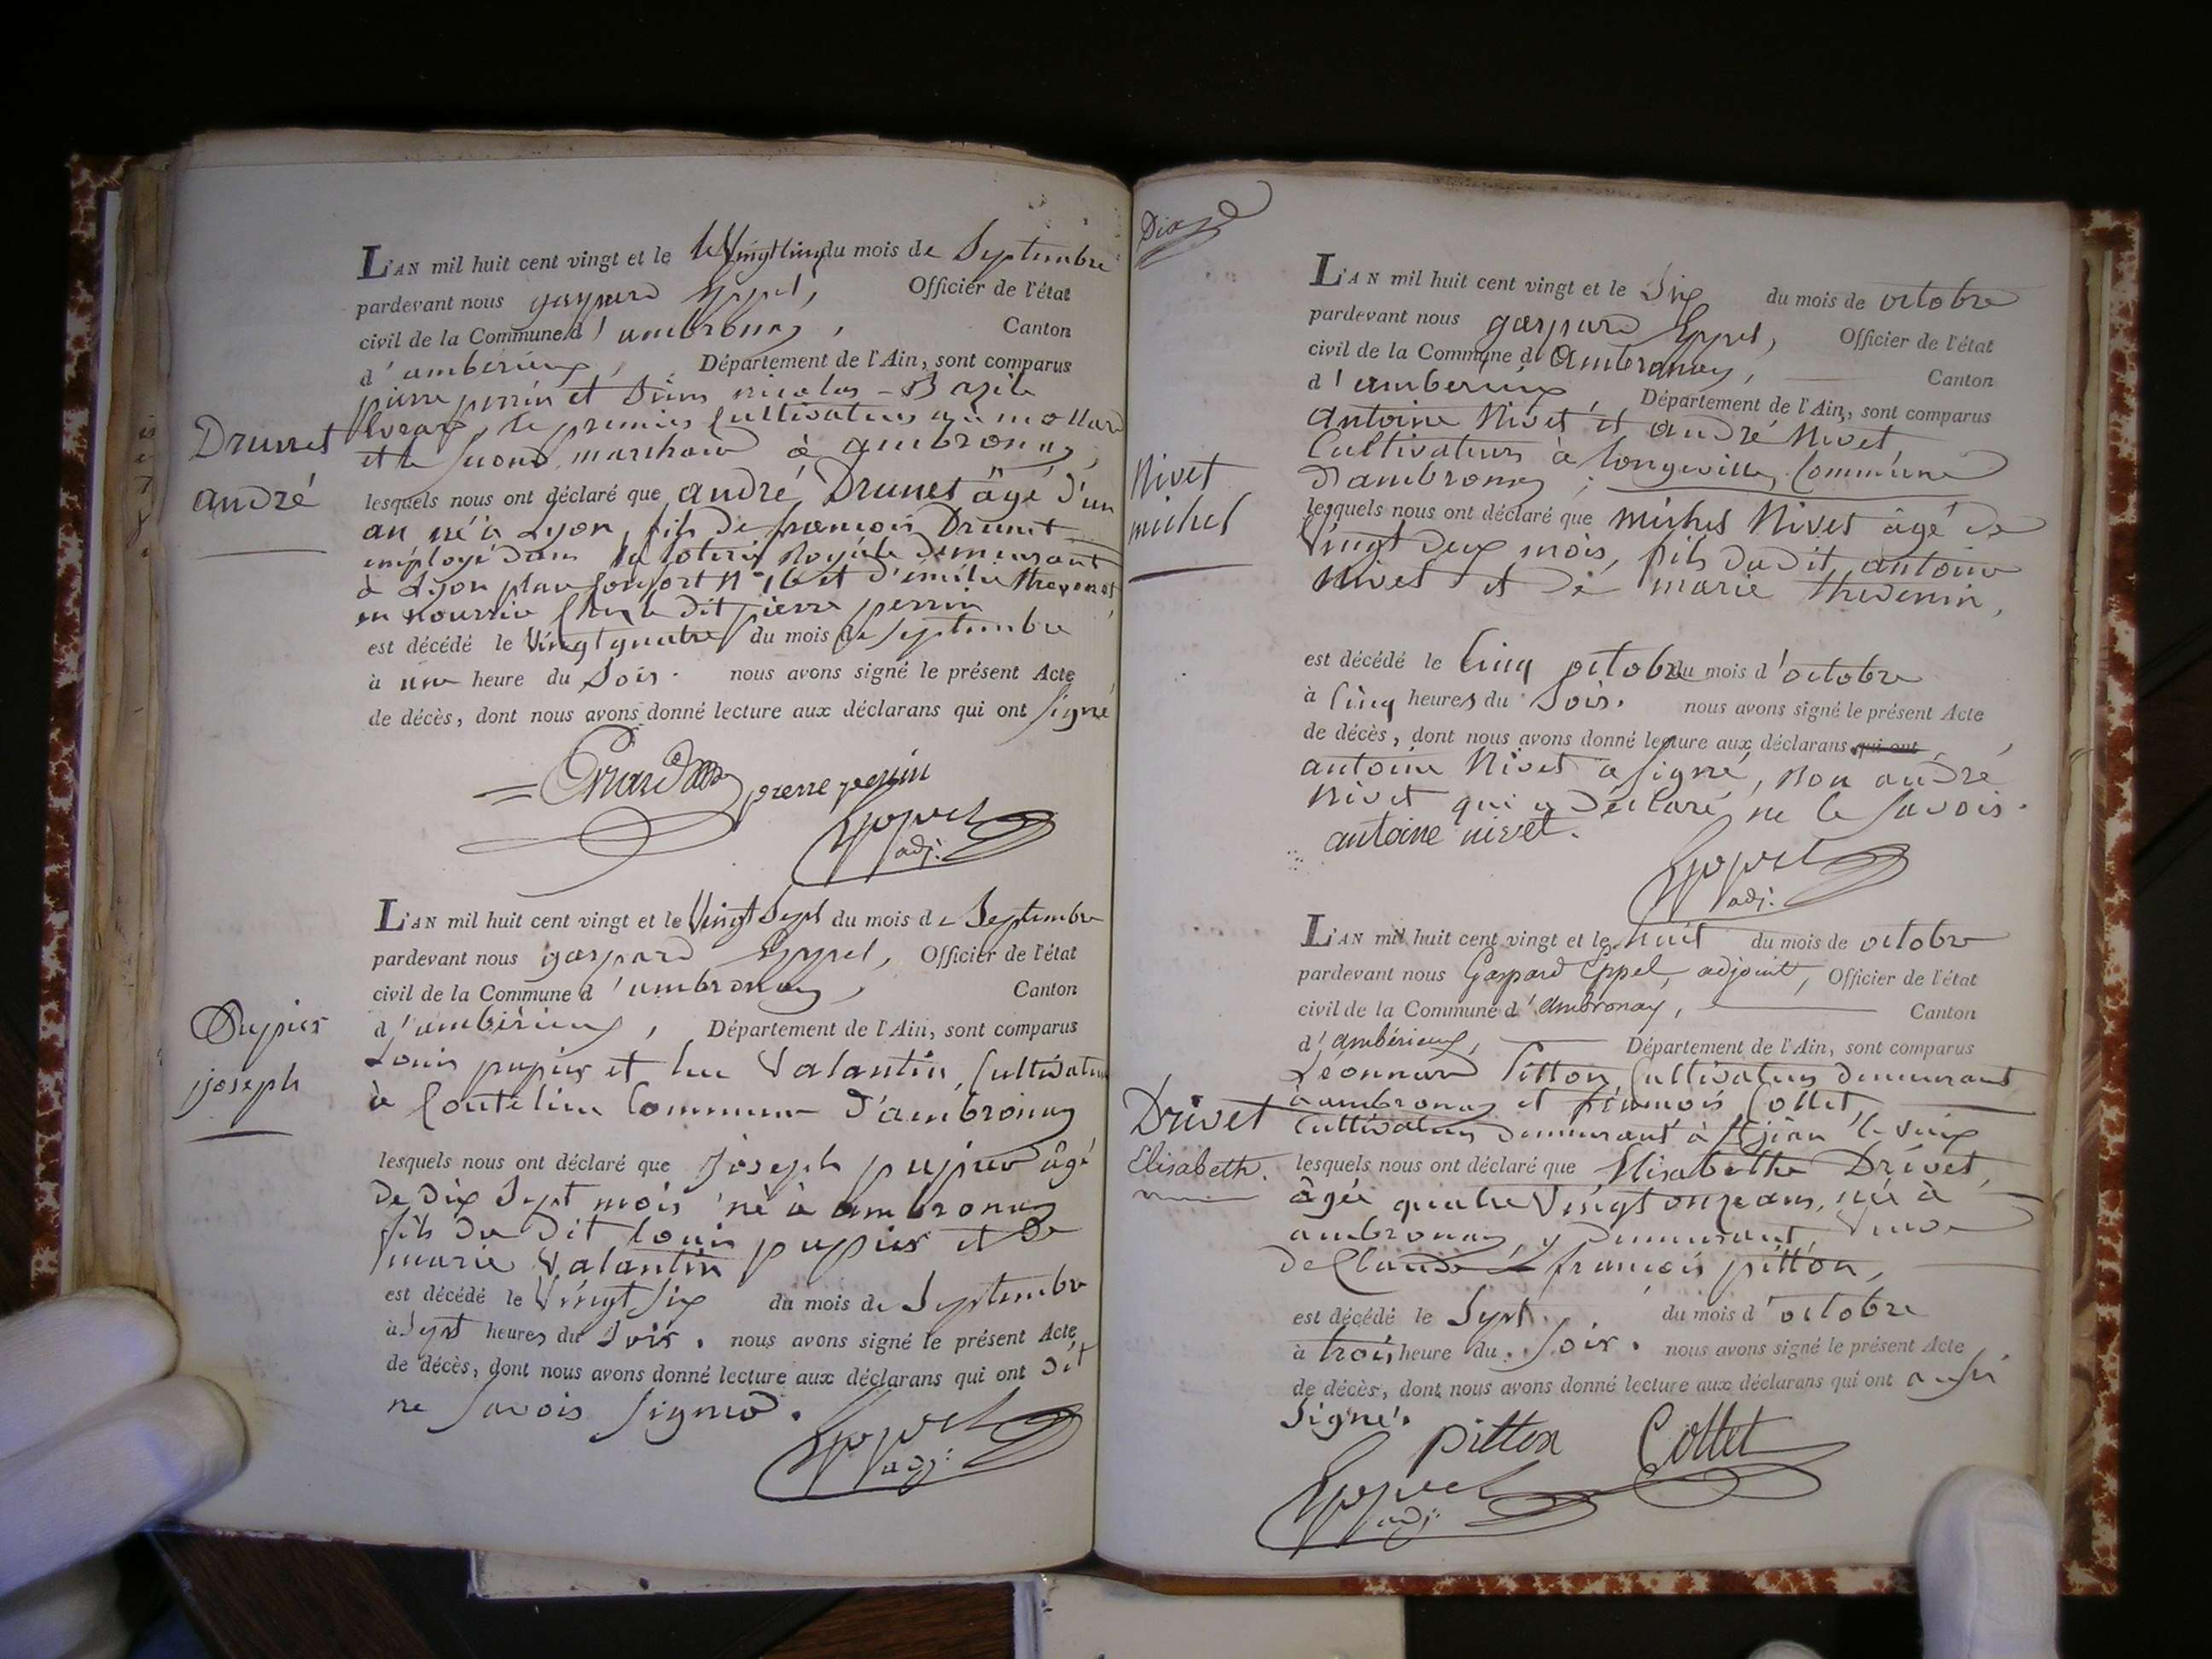 L'AN mil huit cent vingt et le Vingt cinq du mois de Septembre
pardevant nous gaspard Eppel, Officier de l'état
civil de la Commune d'ambronay, Canton
d'ambérieux, Département de l'Ain, sont comparus
pierre perrin et nicolas Bazile
Evrard, le premier Cultivateur au mollard
et le second marchand à ambronay,
Drunet
andré
lesquels nous ont déclaré que andré Drunet âgé d'un
an né à Lyon, fils de françois Drunet
employé dans la loterie Royale demeurant
à Lyon place confort n° 16 et d'émilie thevenet
en nourrice chez le dit pierre perrin
est décédé le Vingt quatre du mois de Septembre
à une heure du Soir. nous avons signé le présent Acte
de décès, dont nous avons donné lecture aux déclarans qui ont signé
Evrard pierre perrin
Eppel
adj:
L'AN mil huit cent vingt et le Vingt Sept du mois de Septembre
pardevant nous gaspard Eppel, Officier de l'état
civil de la Commune d'ambronay, Canton
d'ambérieux, Département de l'Ain, sont comparus
Louis pupier et luc Valantin, Cultivateurs
à Coutelieu Commune d'ambronay
Pupier
joseph
lesquels nous ont déclaré que Joseph pupier âgé
de dix Sept mois né à ambronay
fils du dit louis pupier et de
marie Valantin
est décédé le Vingt Six du mois de Septembre
à Sept heures du Soir. nous avons signé le présent Acte
de décès, dont nous avons donné lecture aux déclarans qui ont dit
ne Savoir Signer.
Eppel
adj:
L'AN mil huit cent vingt et le Six du mois de octobre
pardevant nous gaspard Eppel, Officier de l'état
civil de la Commune d'Ambronay, Canton
d'amberieux, Département de l'Ain, sont comparus
antoine Nivet et andré Nivet
Cultivateurs à longeville, Commune
d'ambronay;
Nivet
michel
lesquels nous ont déclaré que michel Nivet âgé de
Vingt deux mois, fils du dit antoine
Nivet et de marie thevenin,
est décédé le Cinq octobre du mois d'octobre
à Cinq heures du Soir. nous avons signé le présent Acte
de décès, dont nous avons donné lecture aux déclarans qui ont
antoine Nivet a signé, non andré
Nivet qui a déclaré ne le savoir.
antoine nivet.
Eppel
adj:
L'AN mil huit cent vingt et le huit du mois de octobre
pardevant nous Gaspard Eppel, adjoint, Officier de l'état
civil de la Commune d'ambronay, Canton
d'ambérieux, Département de l'Ain, sont comparus
Léonnard Pitton, Cultivateur demeurant
à ambronay et françois Collet,
Cultivateur demeurant à St jean le vieux
Drivet
Elisabeth.
lesquels nous ont déclaré que Elisabethe Drivet,
âgée quatre Vingt onze ans, née à
ambronay, y demeurant, Veuve
de Claude françois pitton,
est décédé le Sept du mois d'octobre
à trois heure du Soir. nous avons signé le présent Acte
de décès, dont nous avons donné lecture aux déclarans qui ont aussi
Signé.
pitton Collet
Eppel
adj: